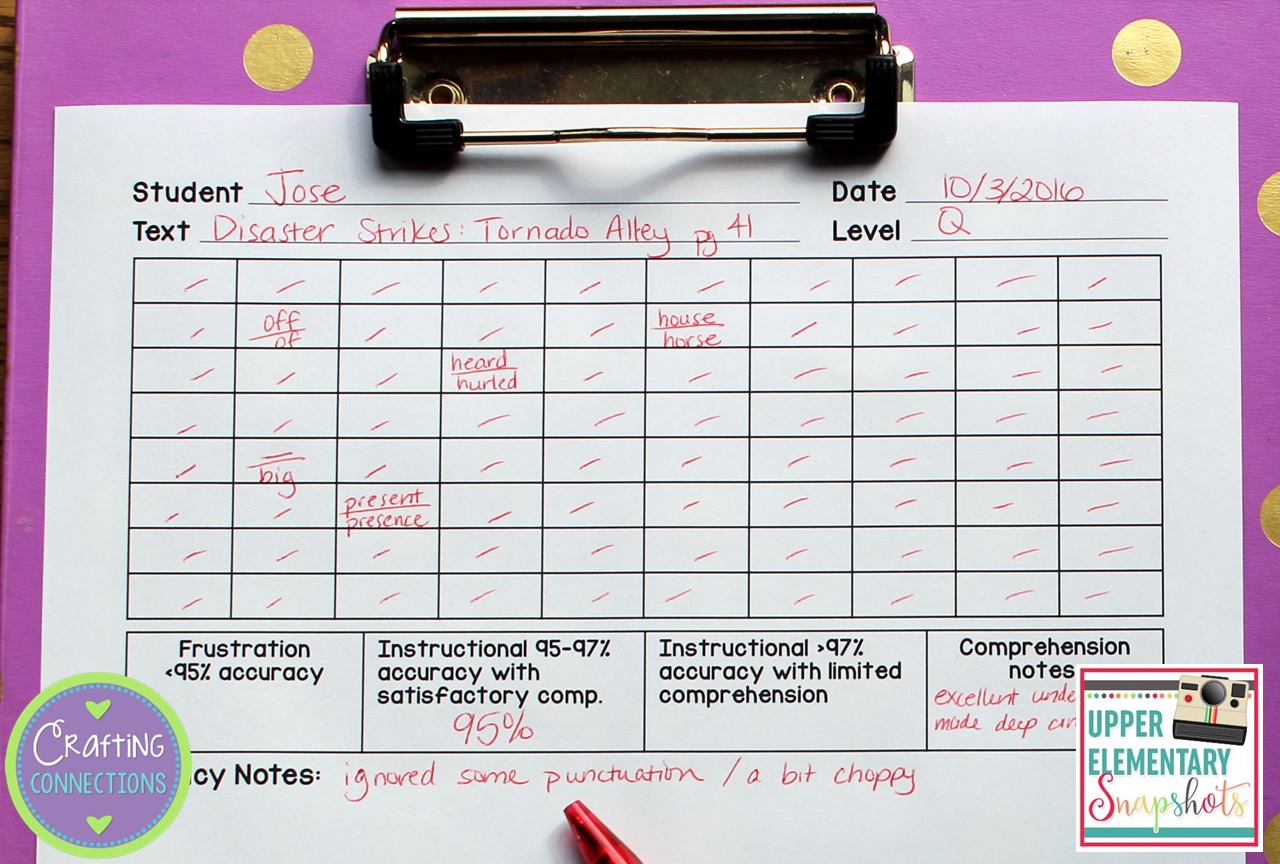 Student Jose Date 10/3/2016
Text Disaster Strikes: Tornado Alley pg 41 Level Q
off house
of horse
heard
hurled
big
present
presence
Frustration Instructional 95-97% Instructional >97% Comprehension
<95% accuracy accuracy with accuracy with limited notes
satisfactory comp. comprehension excellent
95% made deep
Notes: ignored some punctuation / a bit choppy
Crafting
CONNECTIONS
UPPER
ELEMENTARY
Snapshots